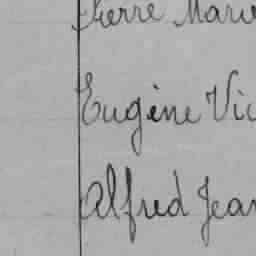 Pierre Marie
Eugène Vic
Alfred Jean